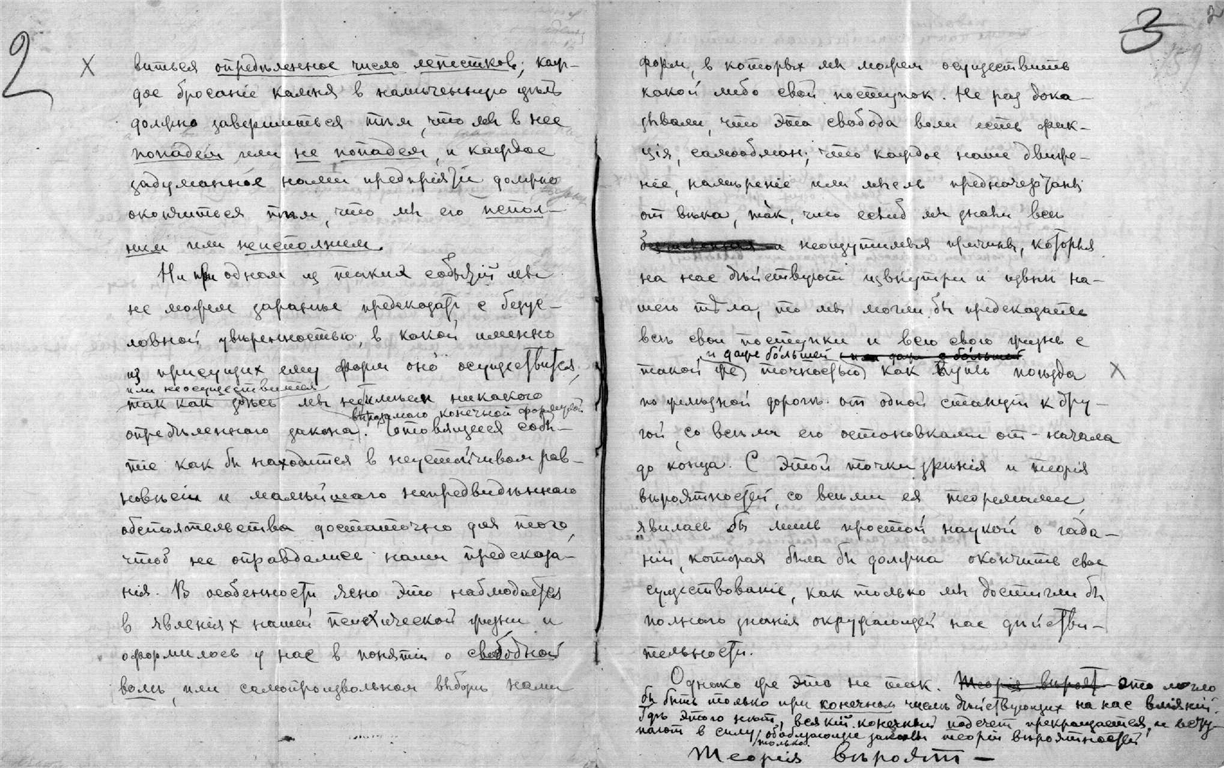 2
виться опредѣленное число лепестков; каж-
дое бросаніе камня в намѣченную цѣль
должно завершиться тѣм, что мы в нее
попадем или не попадем, и каждое
задуманное нами предпріятіе должно
окончиться тѣм, что мы его испол-
ним или неисполним.
Ни при одном из таких событій мы
не можем заранѣе предсказать с безус-
ловной увѣренностью, в какой именно
из присущих ему форм оно осуществится,
или неосуществится
так как здѣсь мы не имѣем никакого
выразимаго конечной формулой
опредѣленнаго закона. Готовящееся собы-
тіе как бы находится в неустойчивом рав-
новѣсіи и малѣйшаго непредвидѣннаго
обстоятельства достаточно для того,
чтоб не оправдались наши предсказа-
нія. В особенности ясно это наблюдается
в явленіях нашей психической жизни и
оформилось у нас в понятіи о свободной
волѣ, или самопроизвольном выборѣ нами
3
159
форм, в которых мы можем осуществить
какой либо свой поступок. Не раз дока-
зывали, что эта свобода воли есть фик-
ція, самообман; что каждое наше движе-
ніе, намѣреніе или мысль предначертаны
от вѣка, так, что если б мы знали всѣ
неощутимыя причины, которыя
на нас дѣйствуют извнутри и извнѣ на-
шего тѣла, то мы могли бы предсказать
всѣ свои поступки и всю свою жизнь с
и даже бо́льшей
такой же точностью, как путь поѣзда
по желѣзной дорогѣ от одной станціи к дру-
гой, со всѣми его остановками от начала
до конца. С этой точки зрѣнія и теорія
вѣроятностей, со всѣми ея теоремами,
явилась бы лишь простой наукой о гада-
ніи, которая была бы должна окончить свое
существованіе, как только мы достигли бы
полнаго знанія окружающей нас дѣйстви-
тельности.
Однако же это не так. Теорія вѣроят это могло
бы быть только при конечном числѣ дѣйствующих на нас вліяній.
Гдѣ этого нѣт, всякій конечный подсчет прекращается, и всту-
пают в силу обобщающіе законы теоріи вѣроятностей
только
Теорія вѣроят-